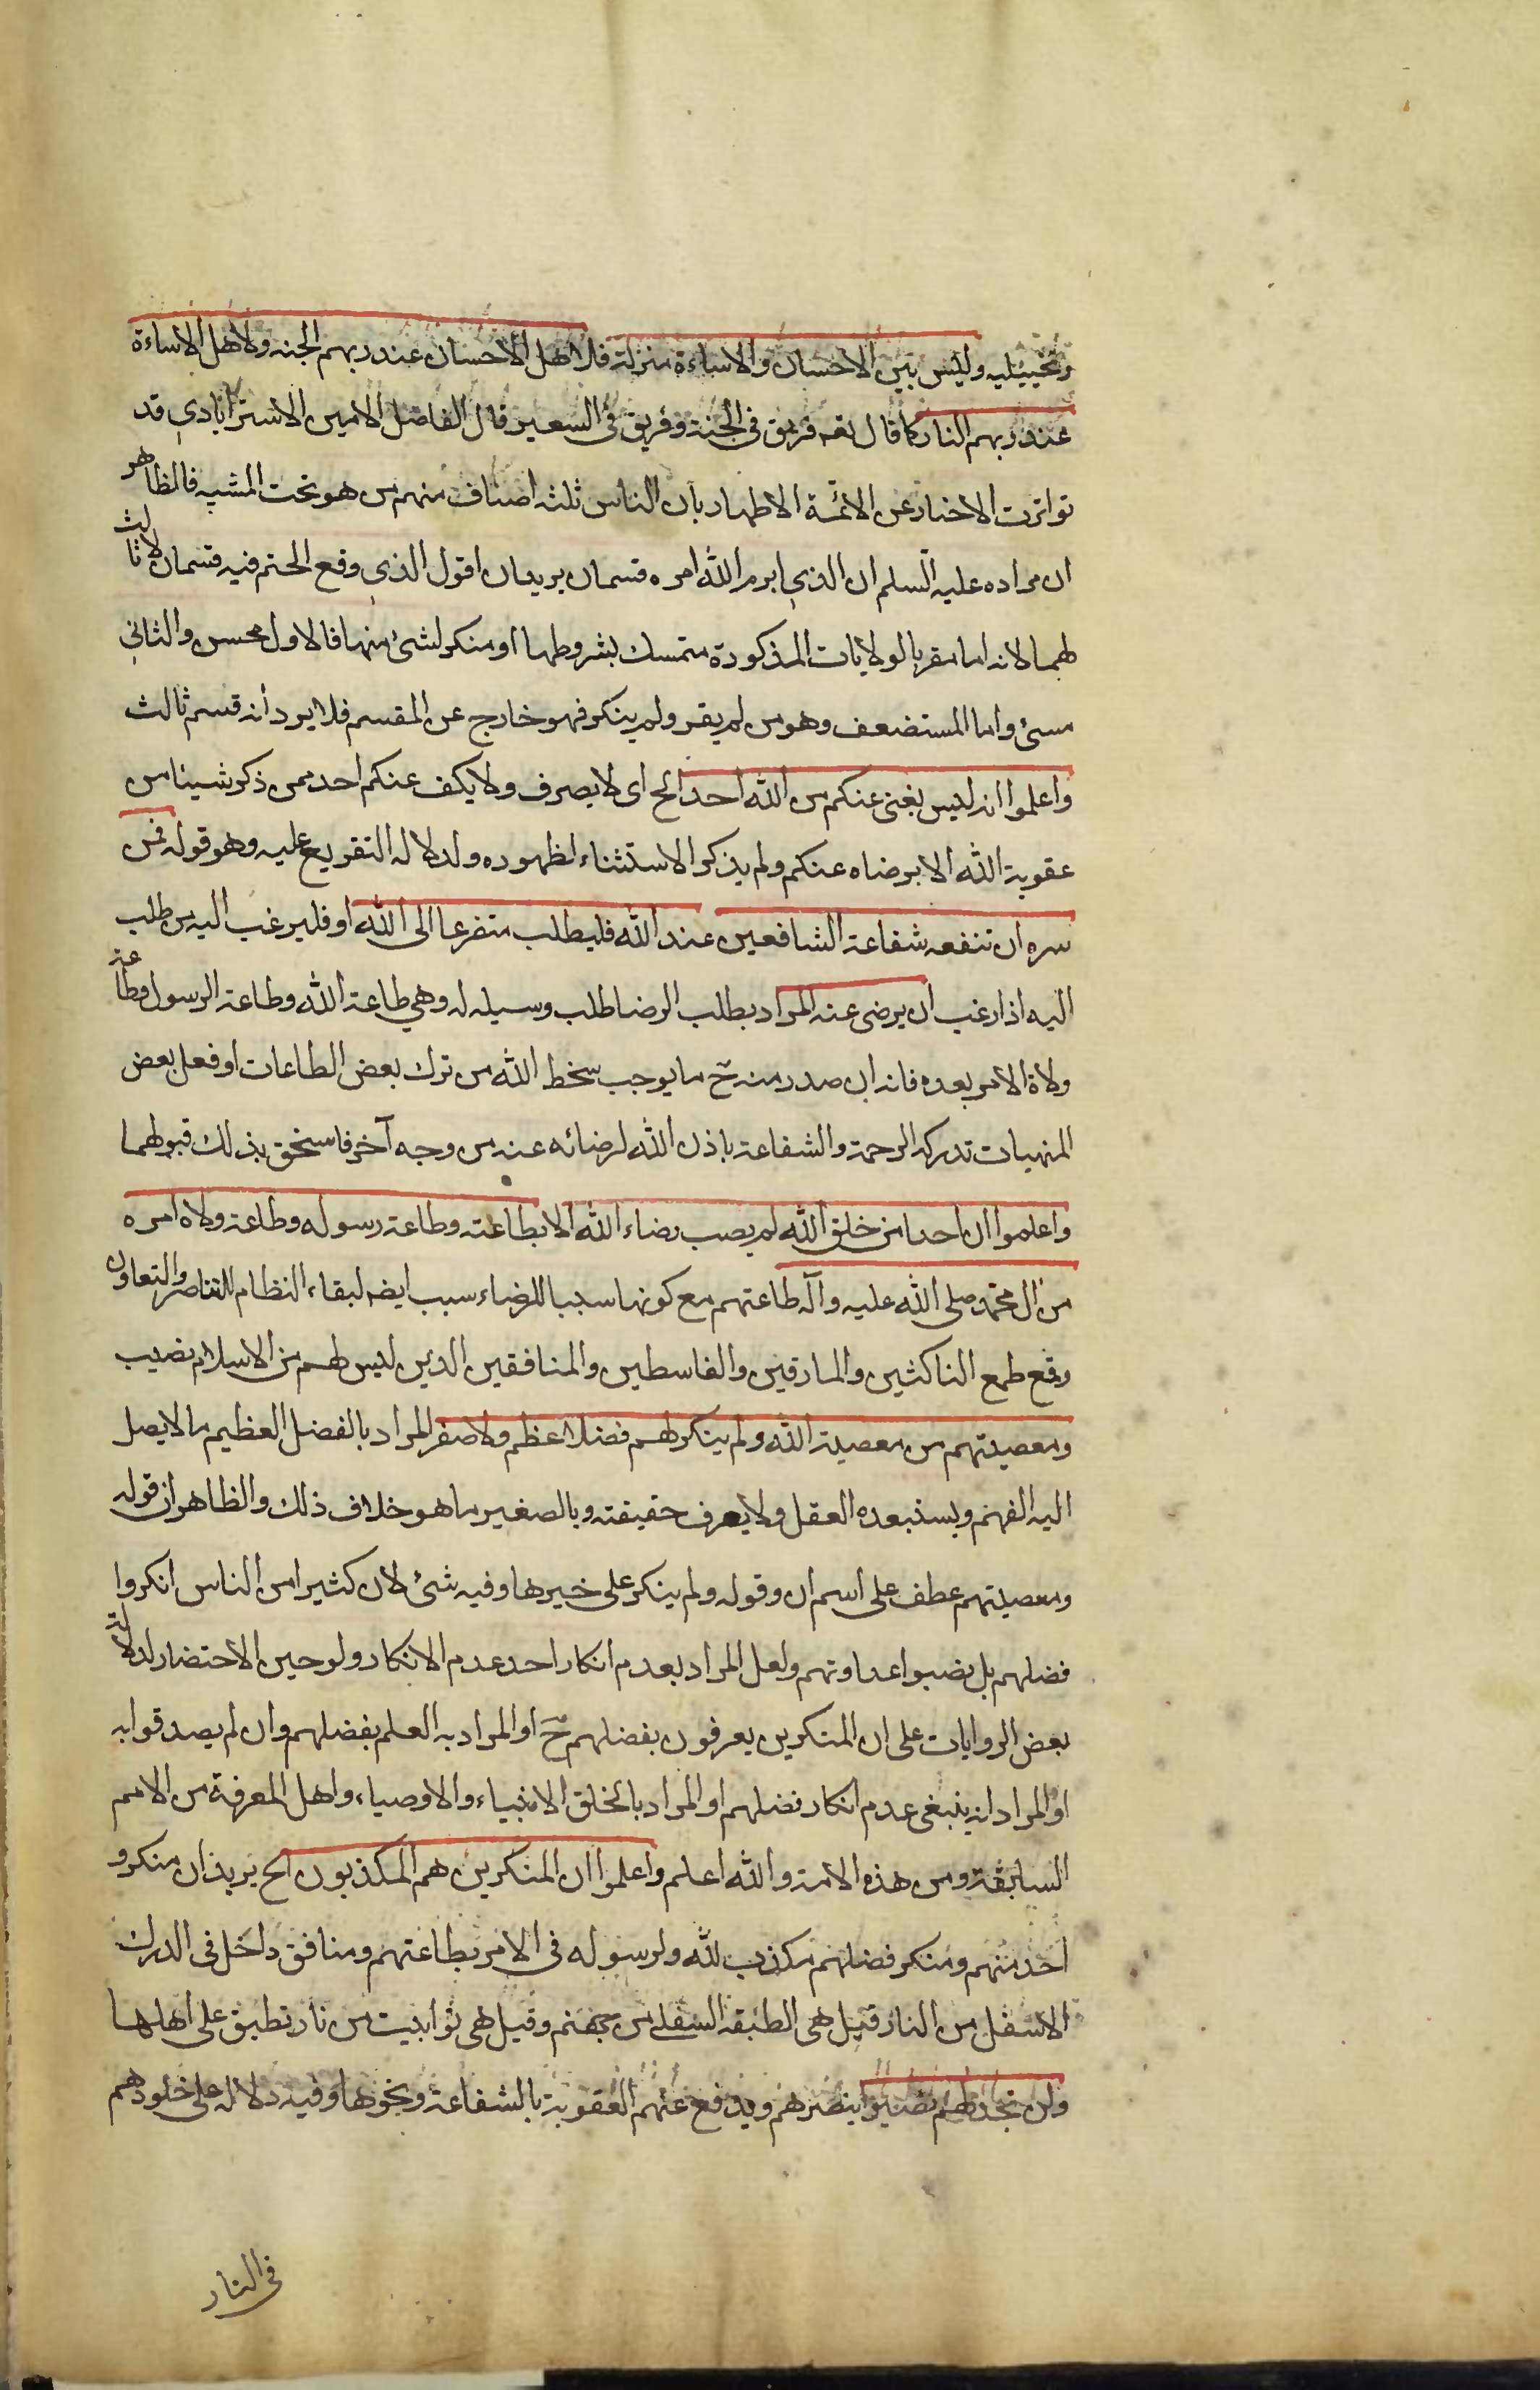 وتخييليه وليس بين الاحسان والاساءة منزلة فلاهل الاحسان عند ربهم الجنه ولاهل الاساءة
عند ربهم النار كما قال تعه فريق فى الجنة وفريق فى السعير قال الفاضل الامين الاسترابادي قد
تواترت الاخبار عن الائمة الاطهار بان الناس ثلثه اصناف منهم من هو تحت المشيه فالظاهر
ان مراده عليه السلم ان الذي ابرم الله امره قسمان يريدان اقول الذي وقع الحتم فيه قسمان لا ثالث
لهما لانه اما مقر بالولايات المذكورة متمسك بشروطها او منكر لشئ منها فالاول محسن والثاني
مسئ واما المستضعف وهو من لم يقر ولم ينكر فهو خارج عن المقسم فلا يرد أنه قسم ثالث
واعلموا انه ليس يغنى عنكم من الله احد الخ اى لا يصرف ولا يكف عنكم احد ممن ذكر شيئا من
عقوبة الله الا برضاه عنكم ولم يذكر الاستثناء لظهوره ولدلاله التفريع عليه وهو قوله فمن
سره ان تنفعه شفاعة الشافعين عند الله فليطلب متضرعا الى الله او فليرغب اليه من طلب
اليه اذا رغب ان يرضى عنه المراد بطلب الرضا طلب وسيله له وهي طاعة الله وطاعة الرسول وطاعة
ولاة الامر بعده فانه ان صدر منه ح ما يوجب سخط الله من ترك بعض الطاعات او فعل بعض
المنهيات تدركه الرحمة والشفاعة باذن الله لرضائه عنه من وجه آخر فاستحق بذلك قبولهما
واعلموا ان احدا من خلق الله لم يصب رضاء الله الا بطاعته وطاعة رسوله وطاعة ولاه امره
من ال محمد صلى الله عليه وآله طاعتهم مع كونها سببا للرضاء سبب ايضه لبقاء النظام للتناصر والتعاون
وقمع طمع الناكثين والمارقين والقاسطين والمنافقين الذين ليس لهم من الاسلام نصيب
ومعصيتهم من معصية الله ولم ينكر لهم فضلا عظم ولا صغر المراد بالفضل العظيم ما لا يصل
اليه الفهم ويستبعده العقل ولا يعرف حقيقته وبالصغير ما هو خلاف ذلك والظاهر ان قوله
ومعصيتهم عطف على اسم ان وقوله ولم ينكر على خيرها وفيه شئ لان كثيرا من الناس انكروا
فضلهم بل نصبوا عداوتهم ولعل المراد بعدم انكار احد عدم الانكار ولو حين الاحتضار لدلالة
بعض الروايات على ان المنكرين يعرفون بفضلهم ح او المراد به العلم بفضلهم وان لم يصدقوا به
او المراد انه ينبغى عدم انكار فضلهم او المراد بالخلق الانبياء والاوصياء واهل المعرفة من الامم
السابقة ومن هذه الامة والله اعلم واعلموا ان المنكرين هم المكذبون الخ يريد ان منكر و
احد منهم ومنكر فضلهم مكذب لله ولرسوله فى الامر بطاعتهم ومنافق داخل فى الدرك
الاسفل من النار قيل هى الطبقه السفلى من جهنم وقيل هى توابيت من نار تطبق على اهلها
ولن تجد لهم نصيرا ينصرهم ويدفع عنهم العقوبة بالشفاعة ونحوها وفيه دلاله على خلودهم
فى النار